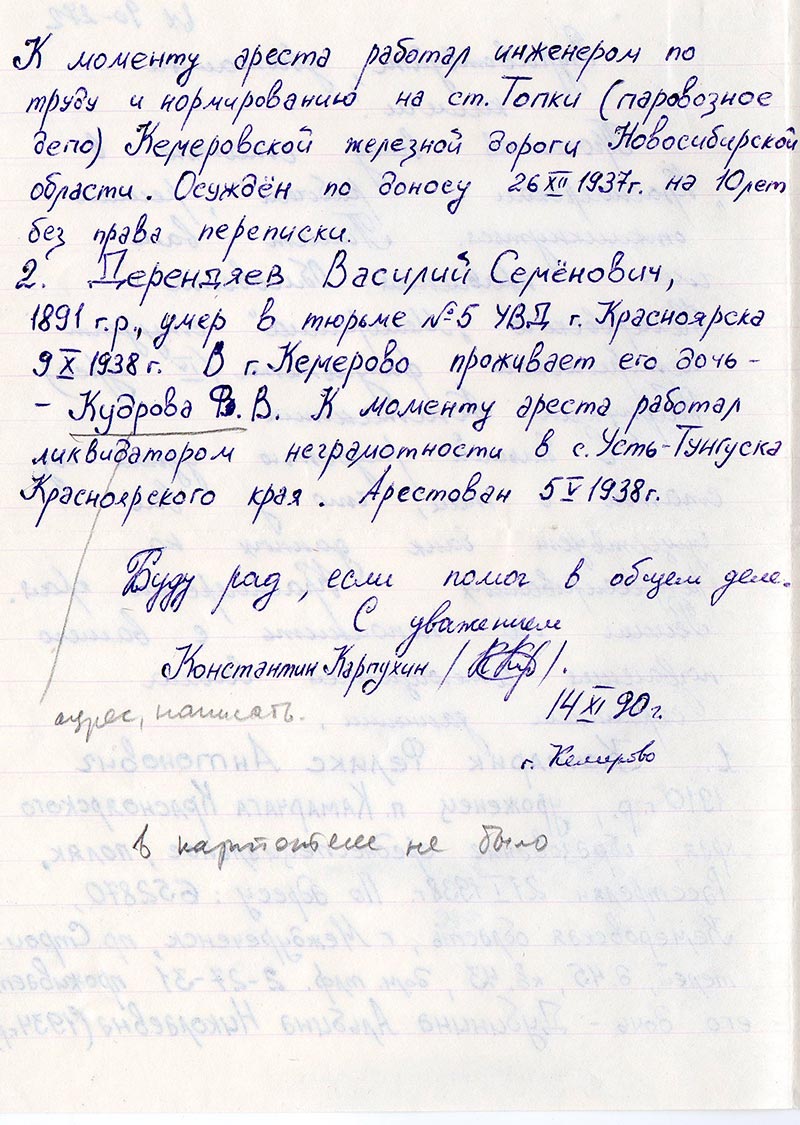 К моменту ареста работал инженером по
труду и нормированию на ст. Топки (паровозное
депо) Кемеровской железной дороги Новосибирской
области. Осуждён по доносу 26 XII 1937г. на 10 лет
без права переписки.
2. Дерендяев Василий Семёнович,
1891 г.р., умер в тюрьме №5 УВД г. Красноярска
9 X 1938 г. В г. Кемерово проживает его дочь -
- Кудрова В. В. К моменту ареста работал
ликвидатором неграмотности в с. Усть-Тунгуска
Красноярского края. Арестован 5 V 1938г.
Буду рад, если помог в общем деле.
С уважением
Константин Карпухин / /.
адрес, написать.
14 XI 90 г.
г. Кемерово
в картотеке не было